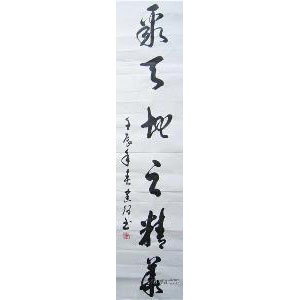 聚天地之精華
壬辰年
書